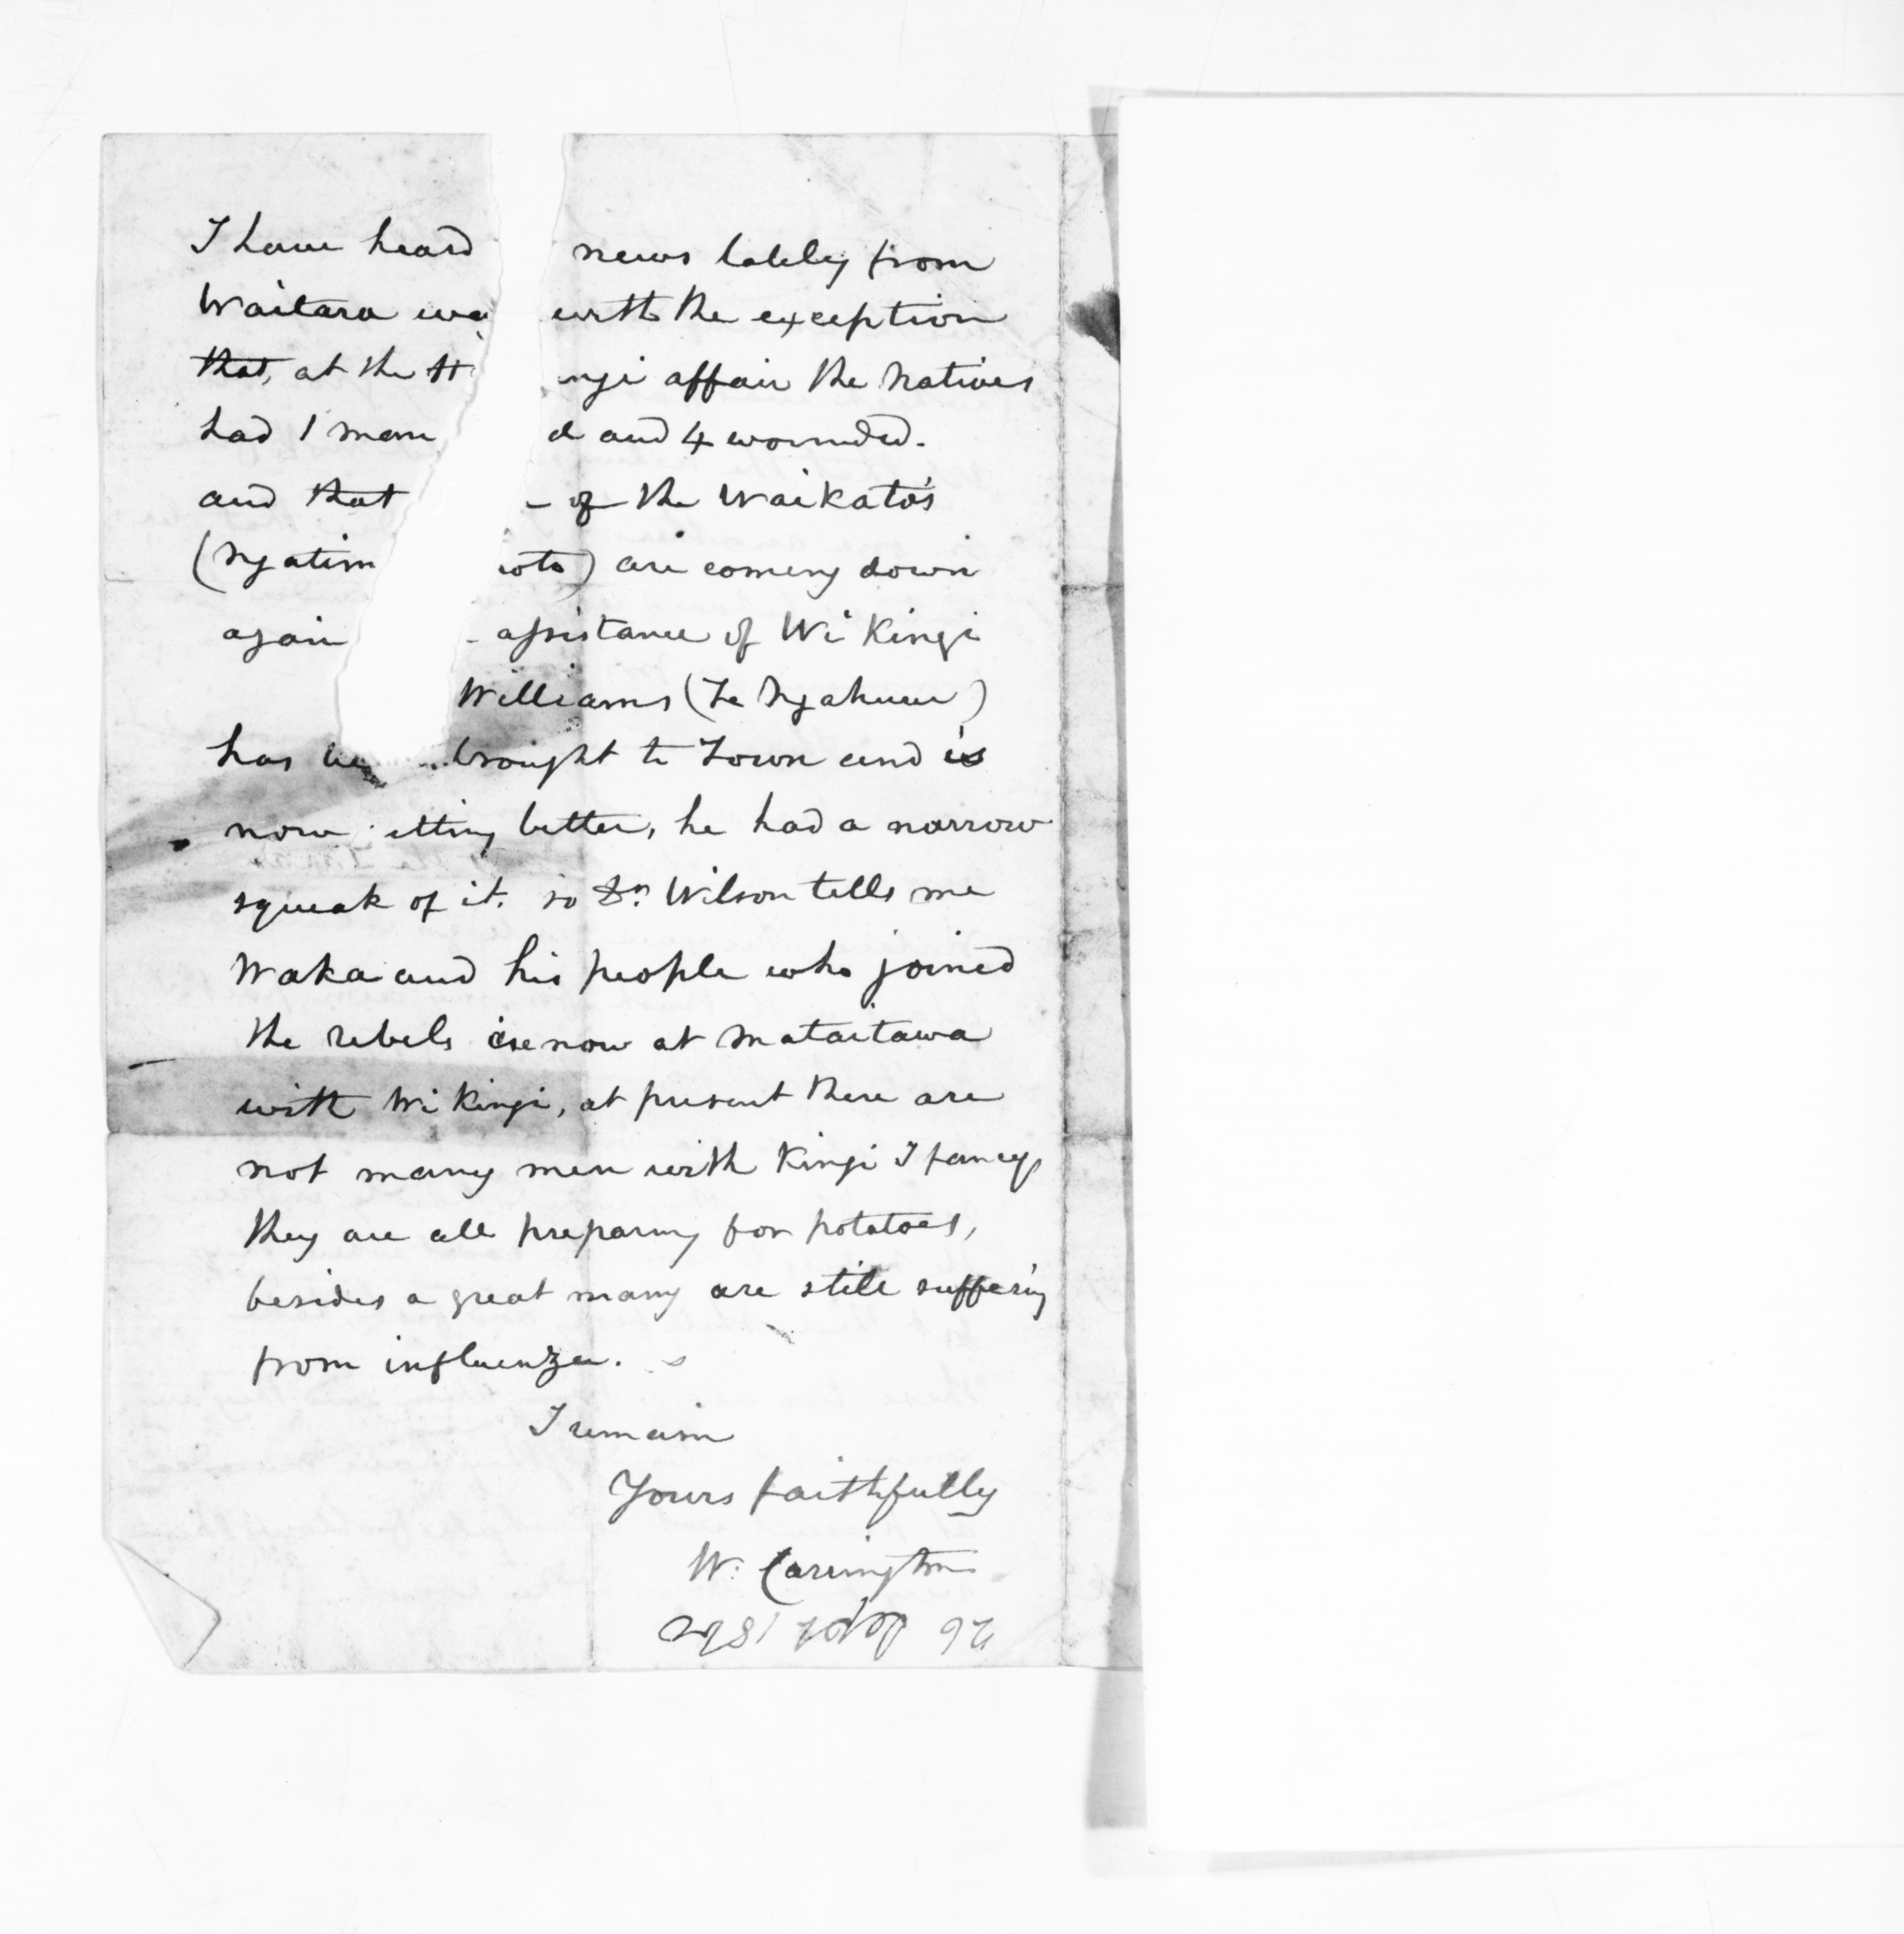 I have heard news lately from
Waitara wa with the exception
that, at the H ngi affair the Natives
had 1 man d and 4 wounded.
and that of the Waikato's
(Ngatim iota) are coming down
again assistance of Wi Kingi
Williams (Te Ngahuru)
has be brought to Town and is
now etting better, he had a narrow
squeak of it. so Dr. Wilson tells me
Waka and his people who joined
the rebels are now at Mataitawa
with Wi Kingi, at present there are
not many men with Kingi I fancy
they are all preparing for potatoes,
besides a great many are still suffering
from influenza.
I remain
Yours faithfully
W. Carrington
26 Sept 1860